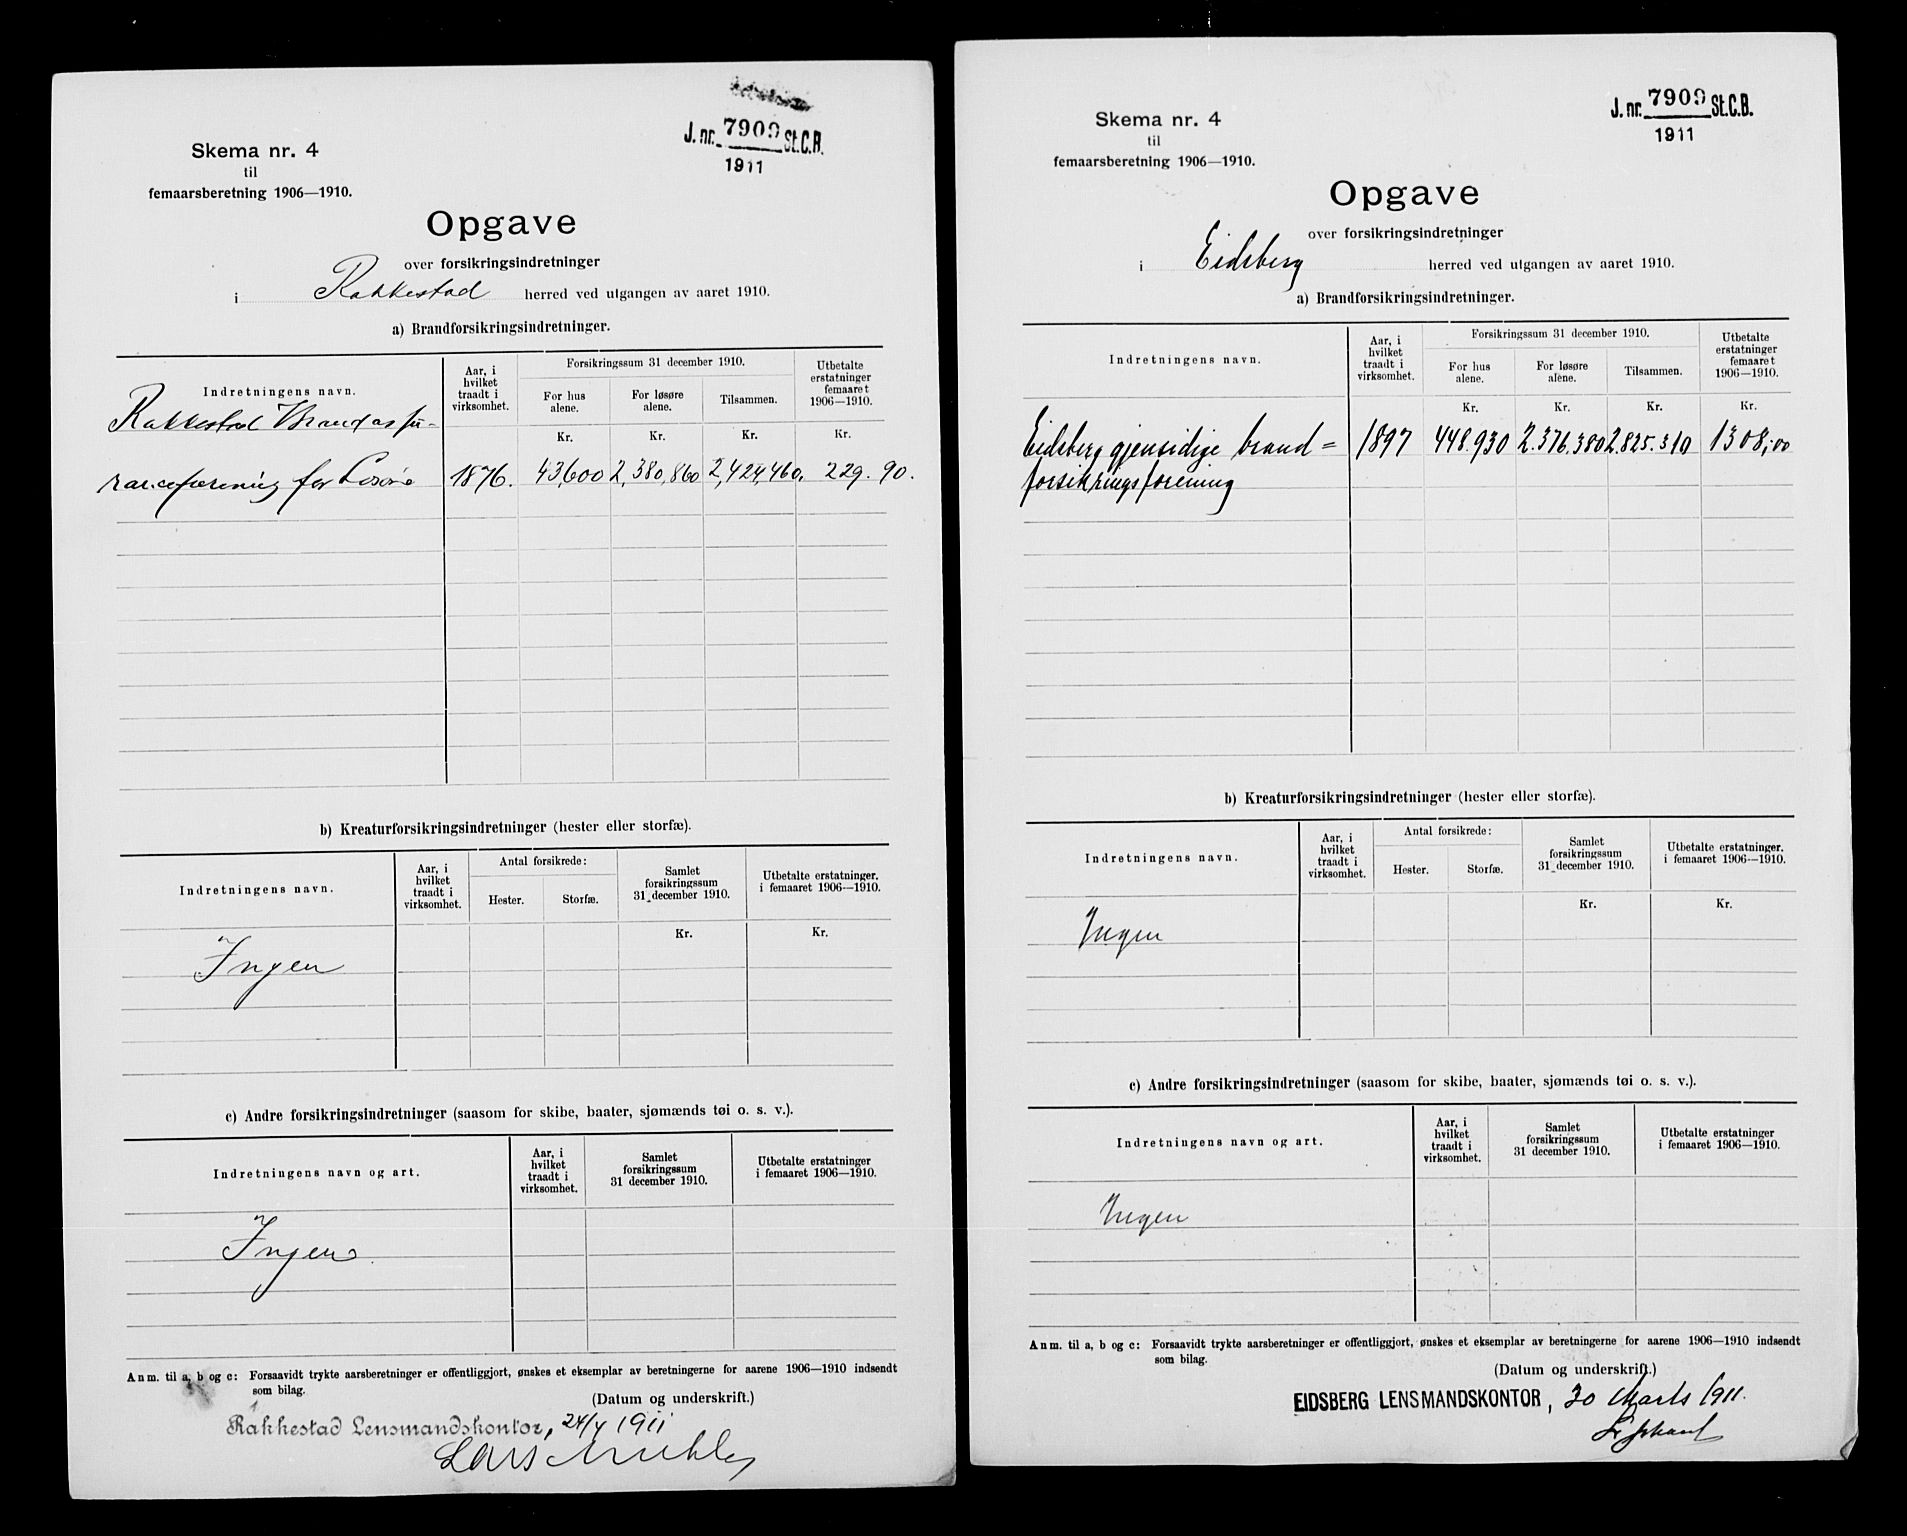 J. nr. 7909 St. C. B.
1911
Skema nr. 4
til
femaarsberetning 1906—1910.
Opgave
over forsikringsindretninger
i Rakkestad herred ved utgangen av aaret 1910.
a) Brandforsikringsindretninger.
Indretningens navn. Aar, i hvilket traadt i virksomhet. Forsikringssum 31 december 1910. Utbetalte erstatninger femaaret 1906—1910.
For hus alene. For løsøre alene. Tilsammen.
Kr. Kr. Kr. Kr.
Rakkestad Brandassu-
ranceforening for Løsøre 1876. 43,600 2,380,860 2,424,460, 229. 90.
b) Kreaturforsikringsindretninger (hester eller storfæ).
Indretningens navn. Aar, i hvilket traadt i virksomhet. Antal forsikrede: Samlet forsikringssum 31 december 1910. Utbetalte erstatninger. i femaaret 1906—1910.
Hester. Storfæ.
Kr. Kr.
Ingen
c) Andre forsikringsindretninger (saasom for skibe, baater, sjømænds tøi o. s. v.).
Indretningens navn og art. Aar, i hvilket traadt i virksomhet. Samlet forsikringssum 31 december 1910. Utbetalte erstatninger i femaaret 1906—1910.
Ingen
Anm. til a, b og c: Forsaavidt trykte aarsberetninger er offentliggjort, ønskes et eksemplar av beretningerne for aarene 1906—1910 indsendt
som bilag.
(Datum og underskrift.)
Rakkestad Lensmandskontor, 24/4 1911
Lars
J. nr. 7909 St. C. B.
1911
Skema nr. 4
til
femaarsberetning 1906—1910.
Opgave
over forsikringsindretninger
i Eidsberg herred ved utgangen av aaret 1910.
a) Brandforsikringsindretninger.
Indretningens navn. Aar, i hvilket traadt i virksomhet. Forsikringssum 31 december 1910. Utbetalte erstatninger femaaret 1906—1910.
For hus alene. For løsøre alene. Tilsammen.
Kr. Kr. Kr. Kr.
Eidsberg gjensidige brand= 1897 448.930 2.376.380 2.825.310 1308,00
forsikringsforening
b) Kreaturforsikringsindretninger (hester eller storfæ).
Indretningens navn. Aar, i hvilket traadt i virksomhet. Antal forsikrede: Samlet forsikringssum 31 december 1910. Utbetalte erstatninger. i femaaret 1906—1910.
Hester. Storfæ.
Kr. Kr.
Ingen
c) Andre forsikringsindretninger (saasom for skibe, baater, sjømænds tøi o. s. v.).
Indretningens navn og art. Aar, i hvilket traadt i virksomhet. Samlet forsikringssum 31 december 1910. Utbetalte erstatninger i femaaret 1906—1910.
Ingen
Anm. til a, b og c: Forsaavidt trykte aarsberetninger er offentliggjort, ønskes et eksemplar av beretningerne for aarene 1906—1910 indsendt
som bilag.
(Datum og underskrift.)
EIDSBERG LENSMANDSKONTOR, 30 Marts 1911.